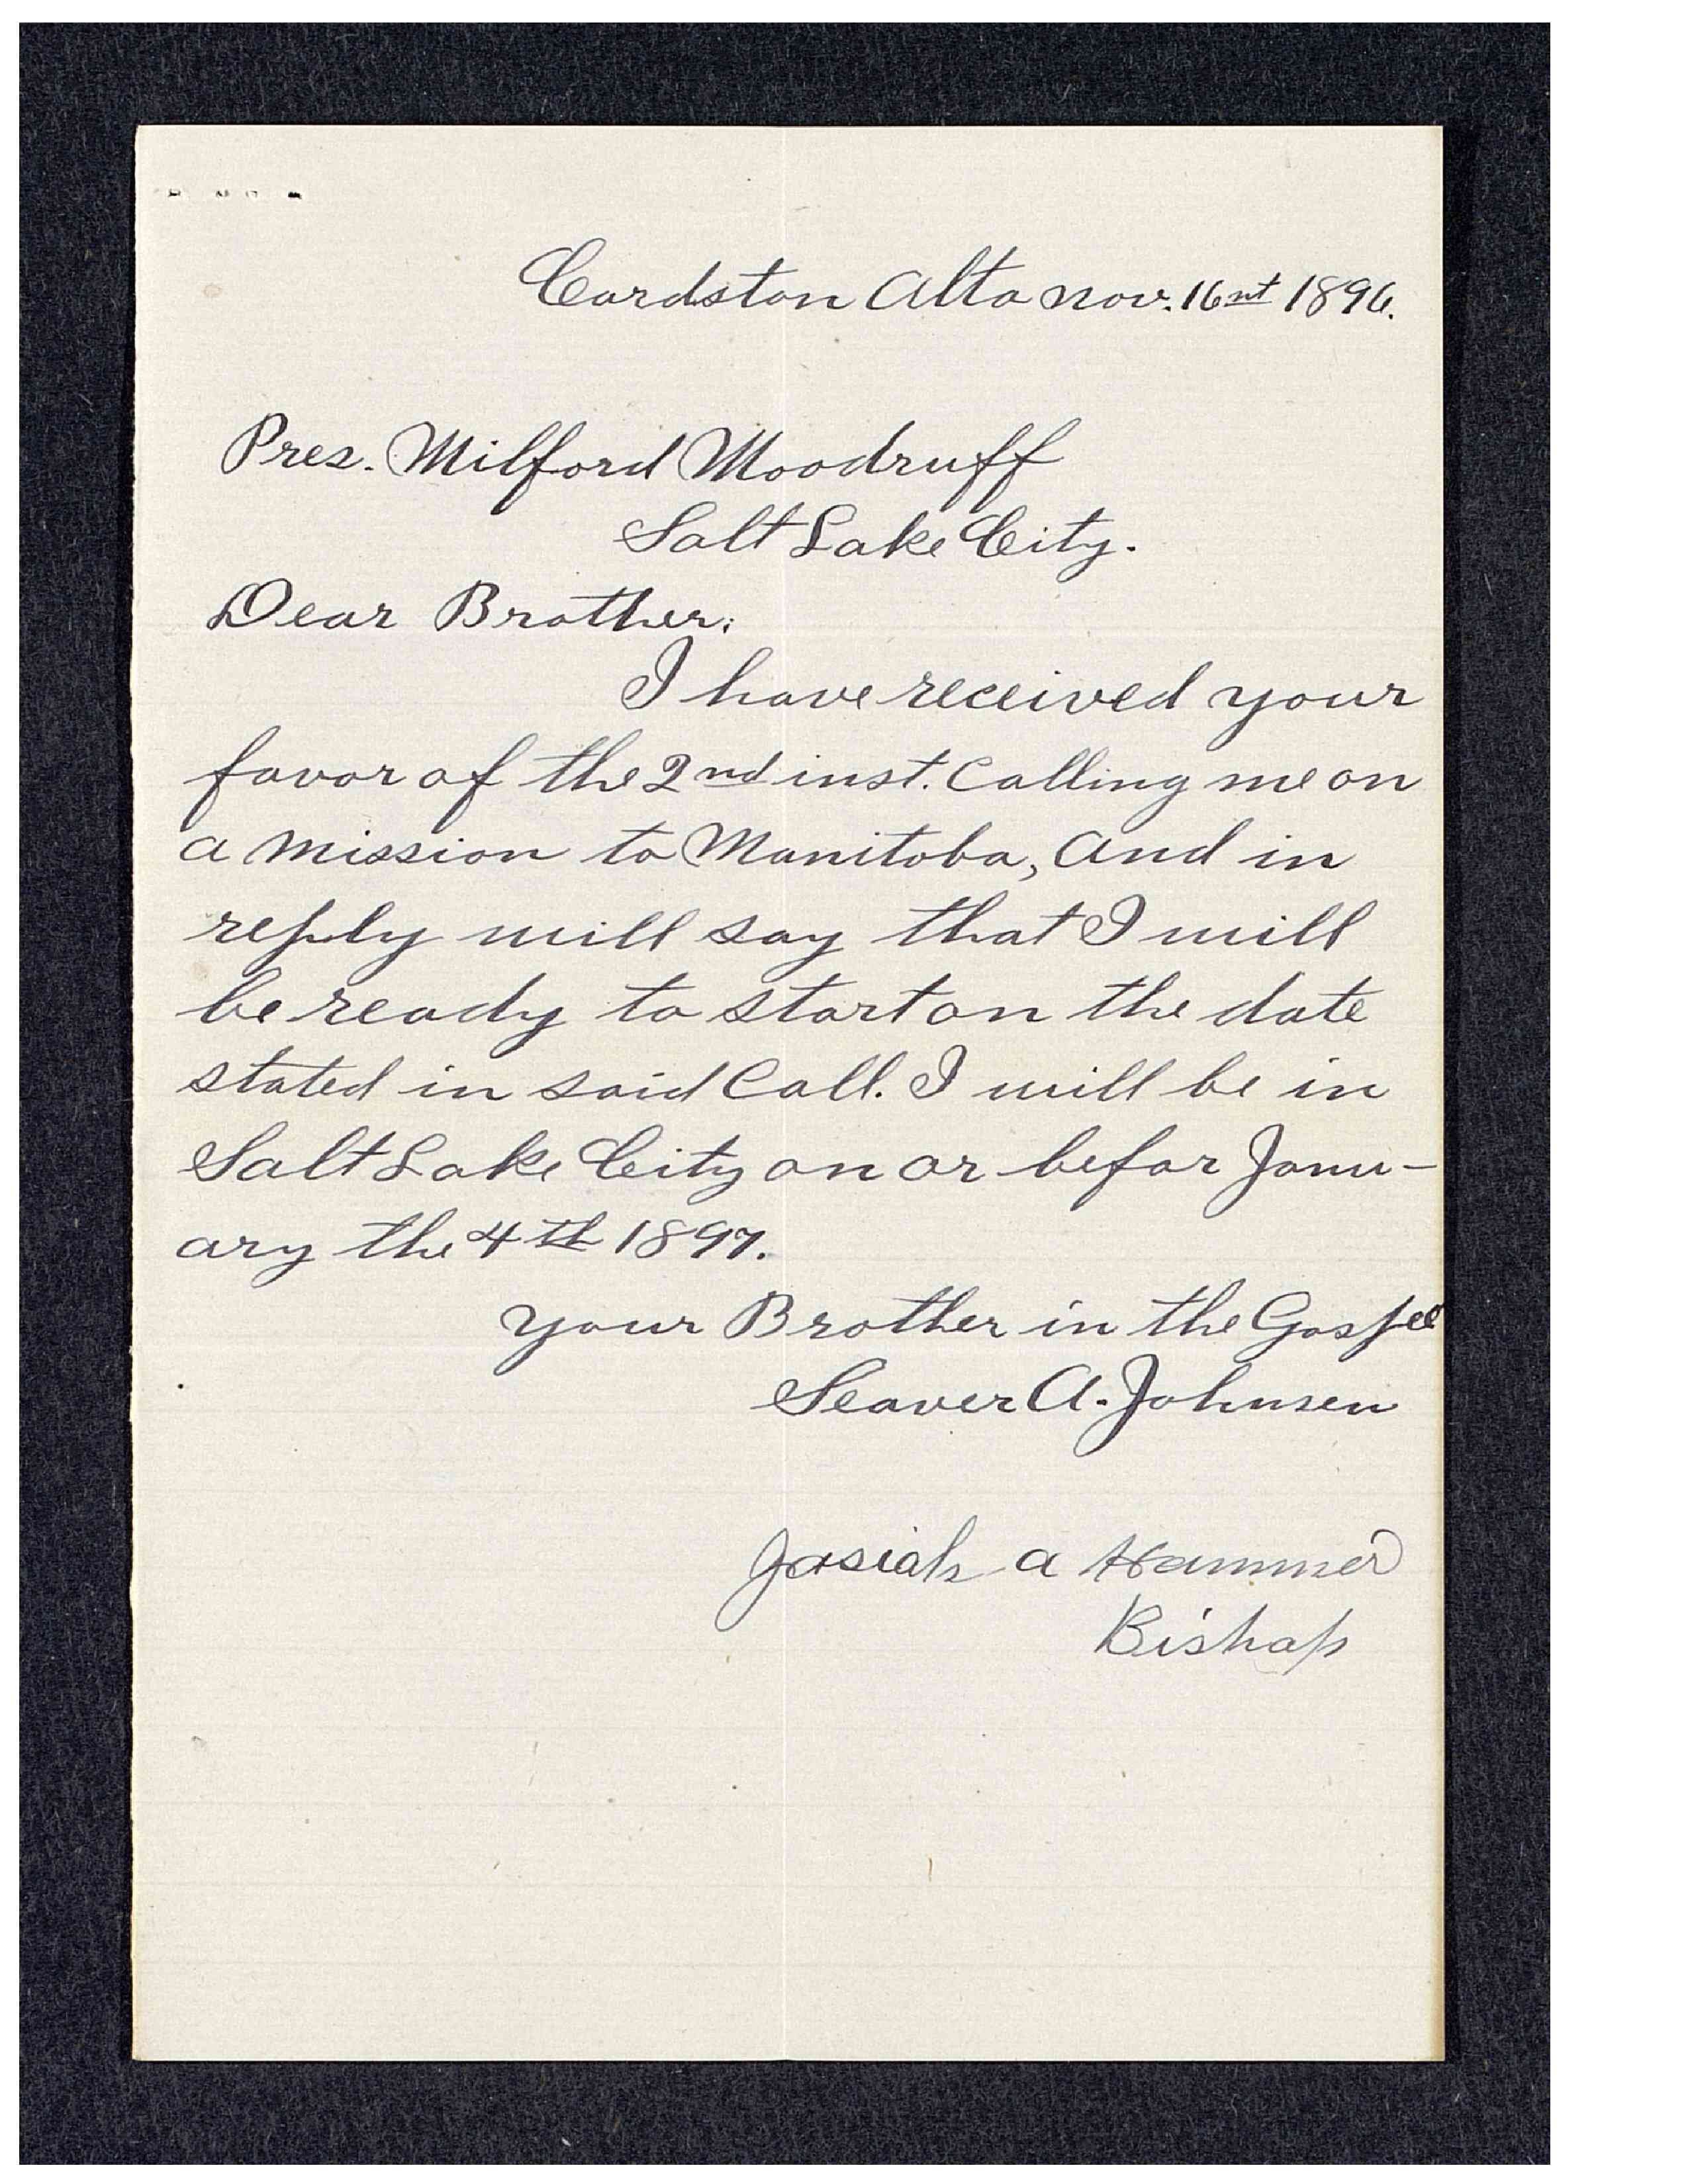 Cardston Alta Nov. 16nt 1896.
Pres. Wilford Woodruff
Salt Lake City.
Dear Brother:
I have received your
favor of the 2nd inst. Calling me on
a mission to Manitoba, and in
reply will say that I will
be ready to start on the date
stated in said Call. I will be in
Salt Lake City on or befor Janu-
ary the 4th 1897.
Your Brother in the Gospel
Seaver A. Johnsen
Josiah A Hammer
Bishop